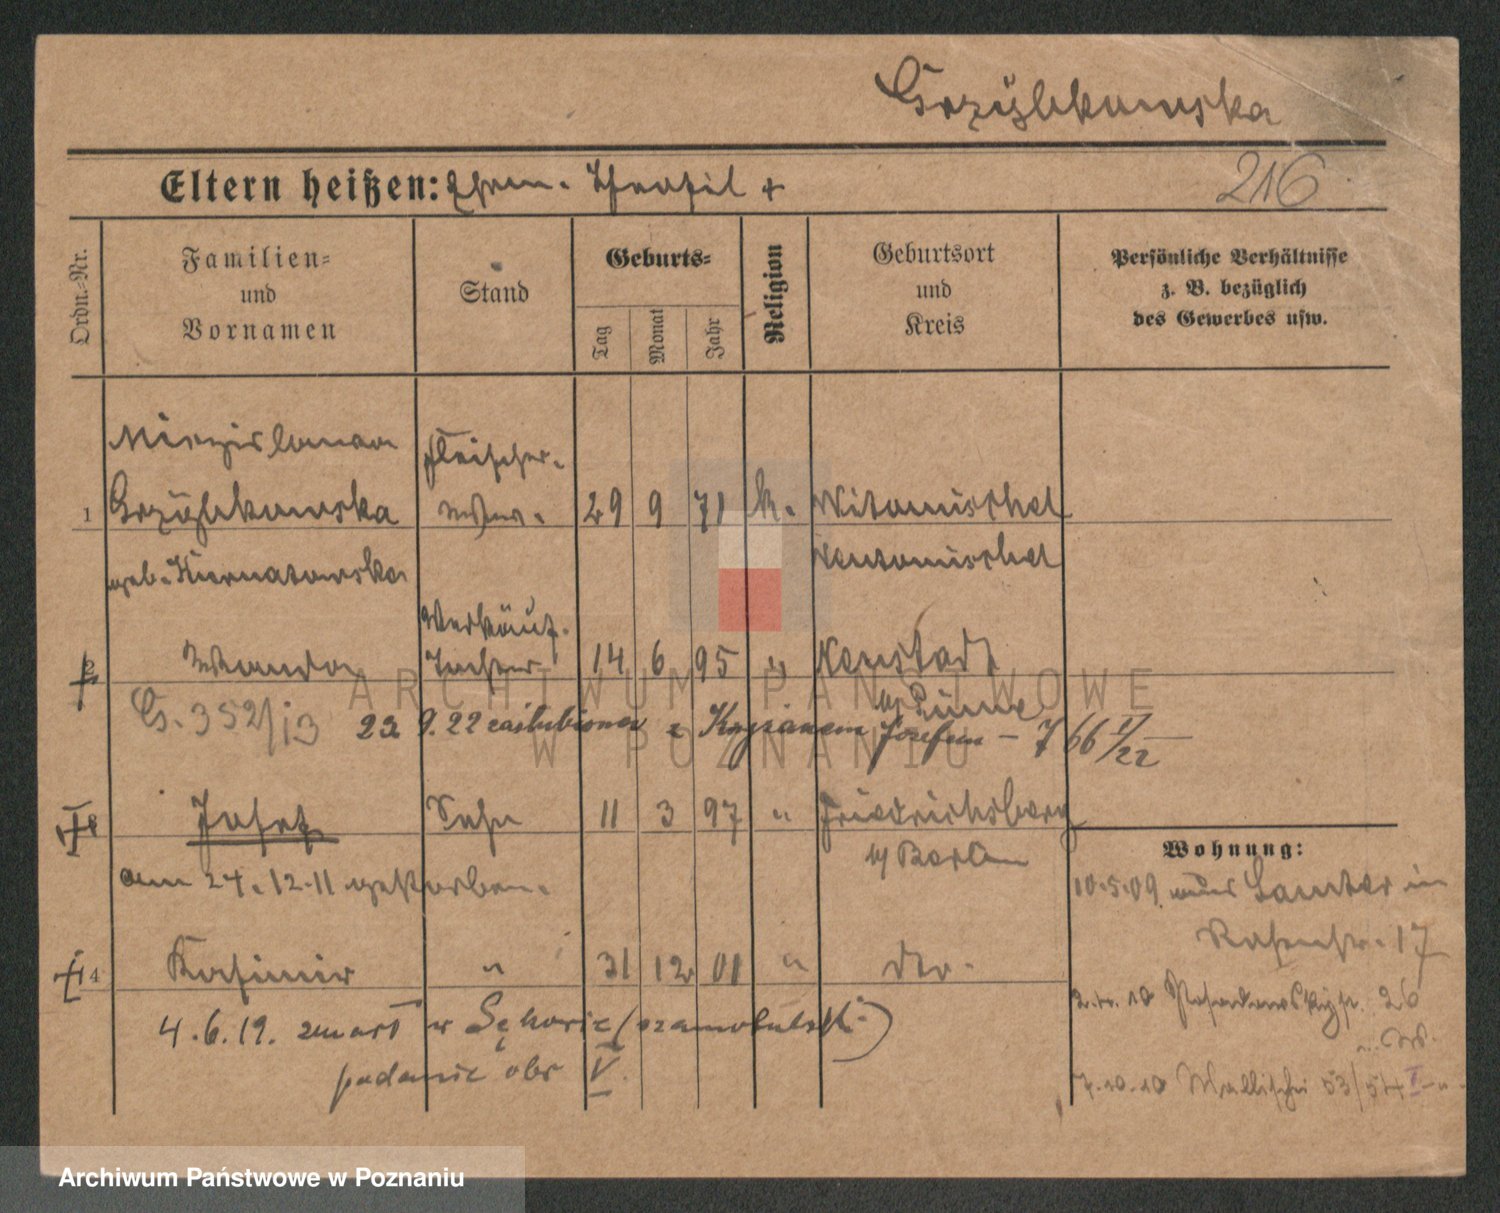 Grzybkowska
Eltern heißen: Ehem. Theofil +
216
Ordn.-Nr.
Familien-
und
Vornamen
Stand
Geburts-
Tag
Monat
Jahr
Religion
Geburtsort
und
Kreis
Persönliche Verhältnisse
z. B. bezüglich
des Gewerbes usw.
Mieczislawa Fleischer-
1 Grzybkowska 29 9 71 k. Witomischel
geb. Kurnatowska Neutomischel
Verkäuf.
2 Wanda Tochter 14 6 95 " Neustadt
b/ Pinne
G. 352/13 22 9.22 zaślubiona z Józefem - 766 V/22
3 Josef Sohn 11 3 97 " Friedrichsberg
b/ Berlin
am 24.12.11 gestorben.
4 Kasimir " 31 12 01 " dto.
4.6.19. zmarł w Sękowie (szamotulski)
podanie obr V.
Wohnung:
10.5.09 aus Samter in
Rosenstr. 17
26
7.10.10 Wallischei 53/54 I
ARCHIWUM PAŃSTWOWE
W POZNANIU
Archiwum Państwowe w Poznaniu